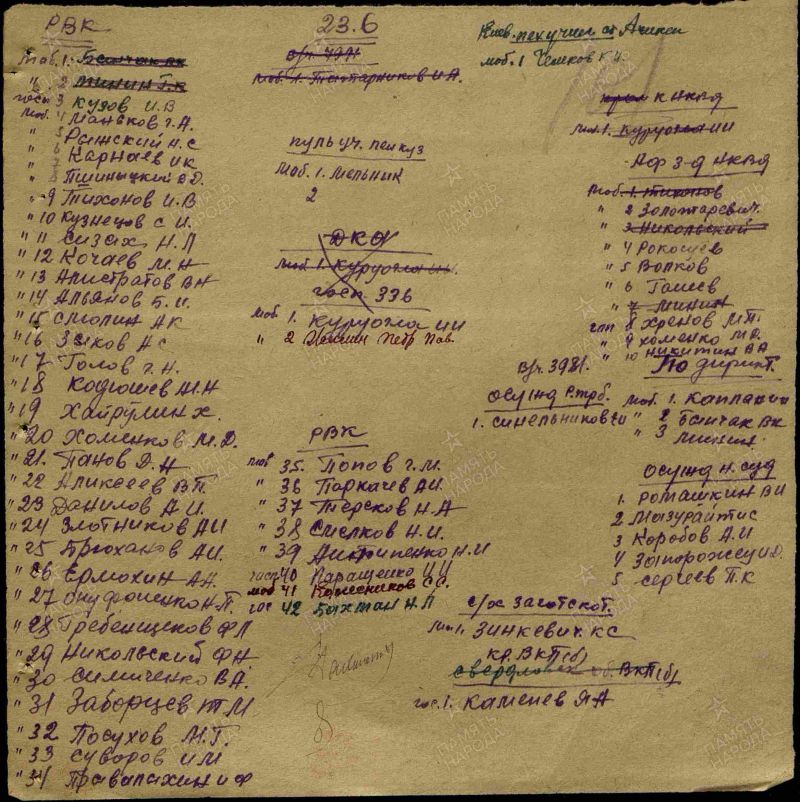 РВК
моб. 1. Банчак вк
" 2 Минин Г.К
госп 3 Кузов И.В
моб. 4 Маньков Г.А.
" 5 Рыжский Н.С
" 6 Карнаев ИК
" 8 Пшиницкий В.Д.
" 9 Тихонов И.В
" 10 Кузнецов С И.
" 11 Сизах Н.П
" 12 Кочаев М.Н
" 13 Апистратов ВН
" 14 Альянов Б.И.
" 15 Смолин АК
" 16 Зыков АС
" 17 Голов Г.Н.
" 18 Кадюшев М.Н
" 19 Хайрулин Х.
" 20 Хоменков М.Д.
" 21. Панов Д.Н
" 22 Аликсеев В.П.
" 23 Данилов А.И.
" 24 Злотников АИ
" 25 Брюханов АИ.
" 26 Ермохин А.Н.
" 27 Онуфриенко Н.П.
" 28 Гребенщеков ФЛ
" 29 Никольский ФН.
" 30 Симиченко В.А.
" 31 Заборцев ТМ
" 32 Посухов М.Г.
" 33 Суворов И М
" 34 Правалахин И Ф
23.6
моб. 1. Татарников И.А.
пульуч. пен куз
Моб. 1. Мельник
2
ДКА
моб 1. Куруогла ИИ.
госп. 336
моб 1. Куруогла ИИ
" 2 Петр Пав.
РВК
моб 35. Попов Г.М.
" 36 Паркачев АИ.
" 37 Терехов Н.А
" 38 Смелков Н.И.
" 39 Антипенко Н.И
госп 40 Паращенко И.И.
моб 41 Колесников С.С.
гос 42 Бахтан Н.П
8
Киев. пехучил ст Ачикен
моб. 1 Чешков Г.И.
КНКВД
моб. 1. Куруогла ИИ
Аф 3-д НКВД
моб. 1. Тихонов
" 2 Золотаревич.
" 3 Никольский
" 4 Рокосуев
" 5 Волков
" 6 Гашев
" 7 Минин
госп 8 Хренов М.П.
" 9 Хоменко М.Д.
" 10 Никитин ВА
В/ч. 3981.
Осужд Р.трб.
1. Синельников
По директ.
моб. 1. Каплан
" 2 Банчак Вк
" 3 Минин.
Осужд н. суд
1. Ромашкин В И
2 Мазурайтис
3 Коробов А.И
4 Запорожец И.Д.
5 Сергеев П.К
с/х Заготскот.
моб 1. Зинкевич. КС
кр. ВКП(б)
Свердловск об. ВКП(б)
гос. 1. Каменев ЯА
ПАМЯТЬ НАРОДА